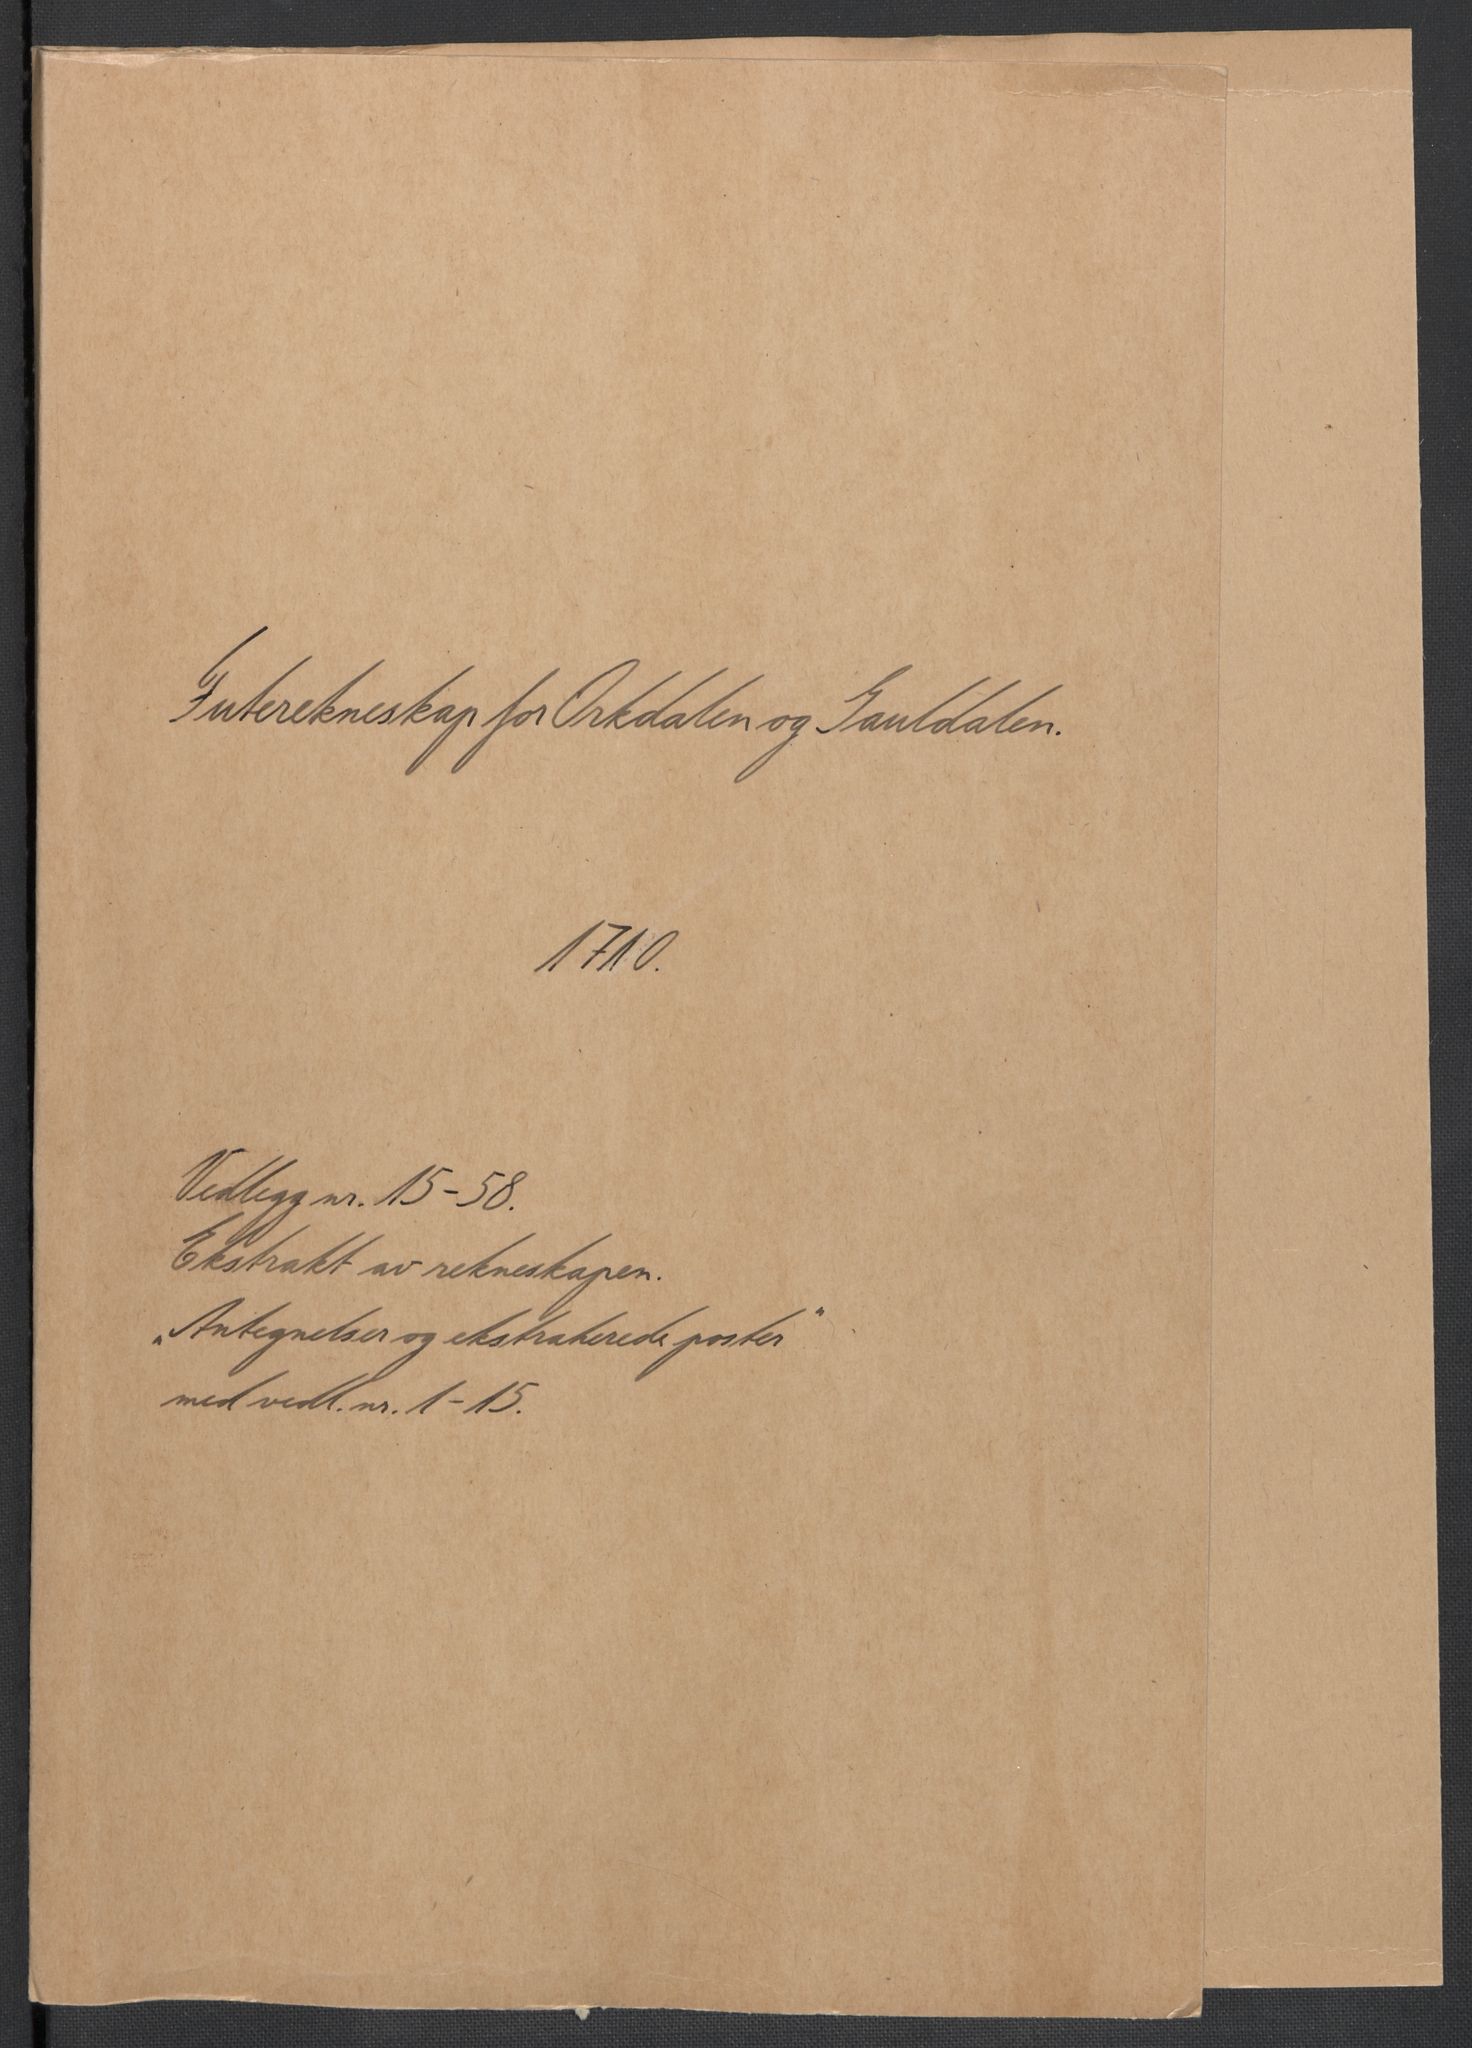 Futerekneskap for Orkdalen og Gauldalen.
1710.
Vedlegg nr. 15-58.
Ekstrakt av rekneskapen.
„Antegnelser og ekstraherede poster"
med vedl. nr. 1-15.